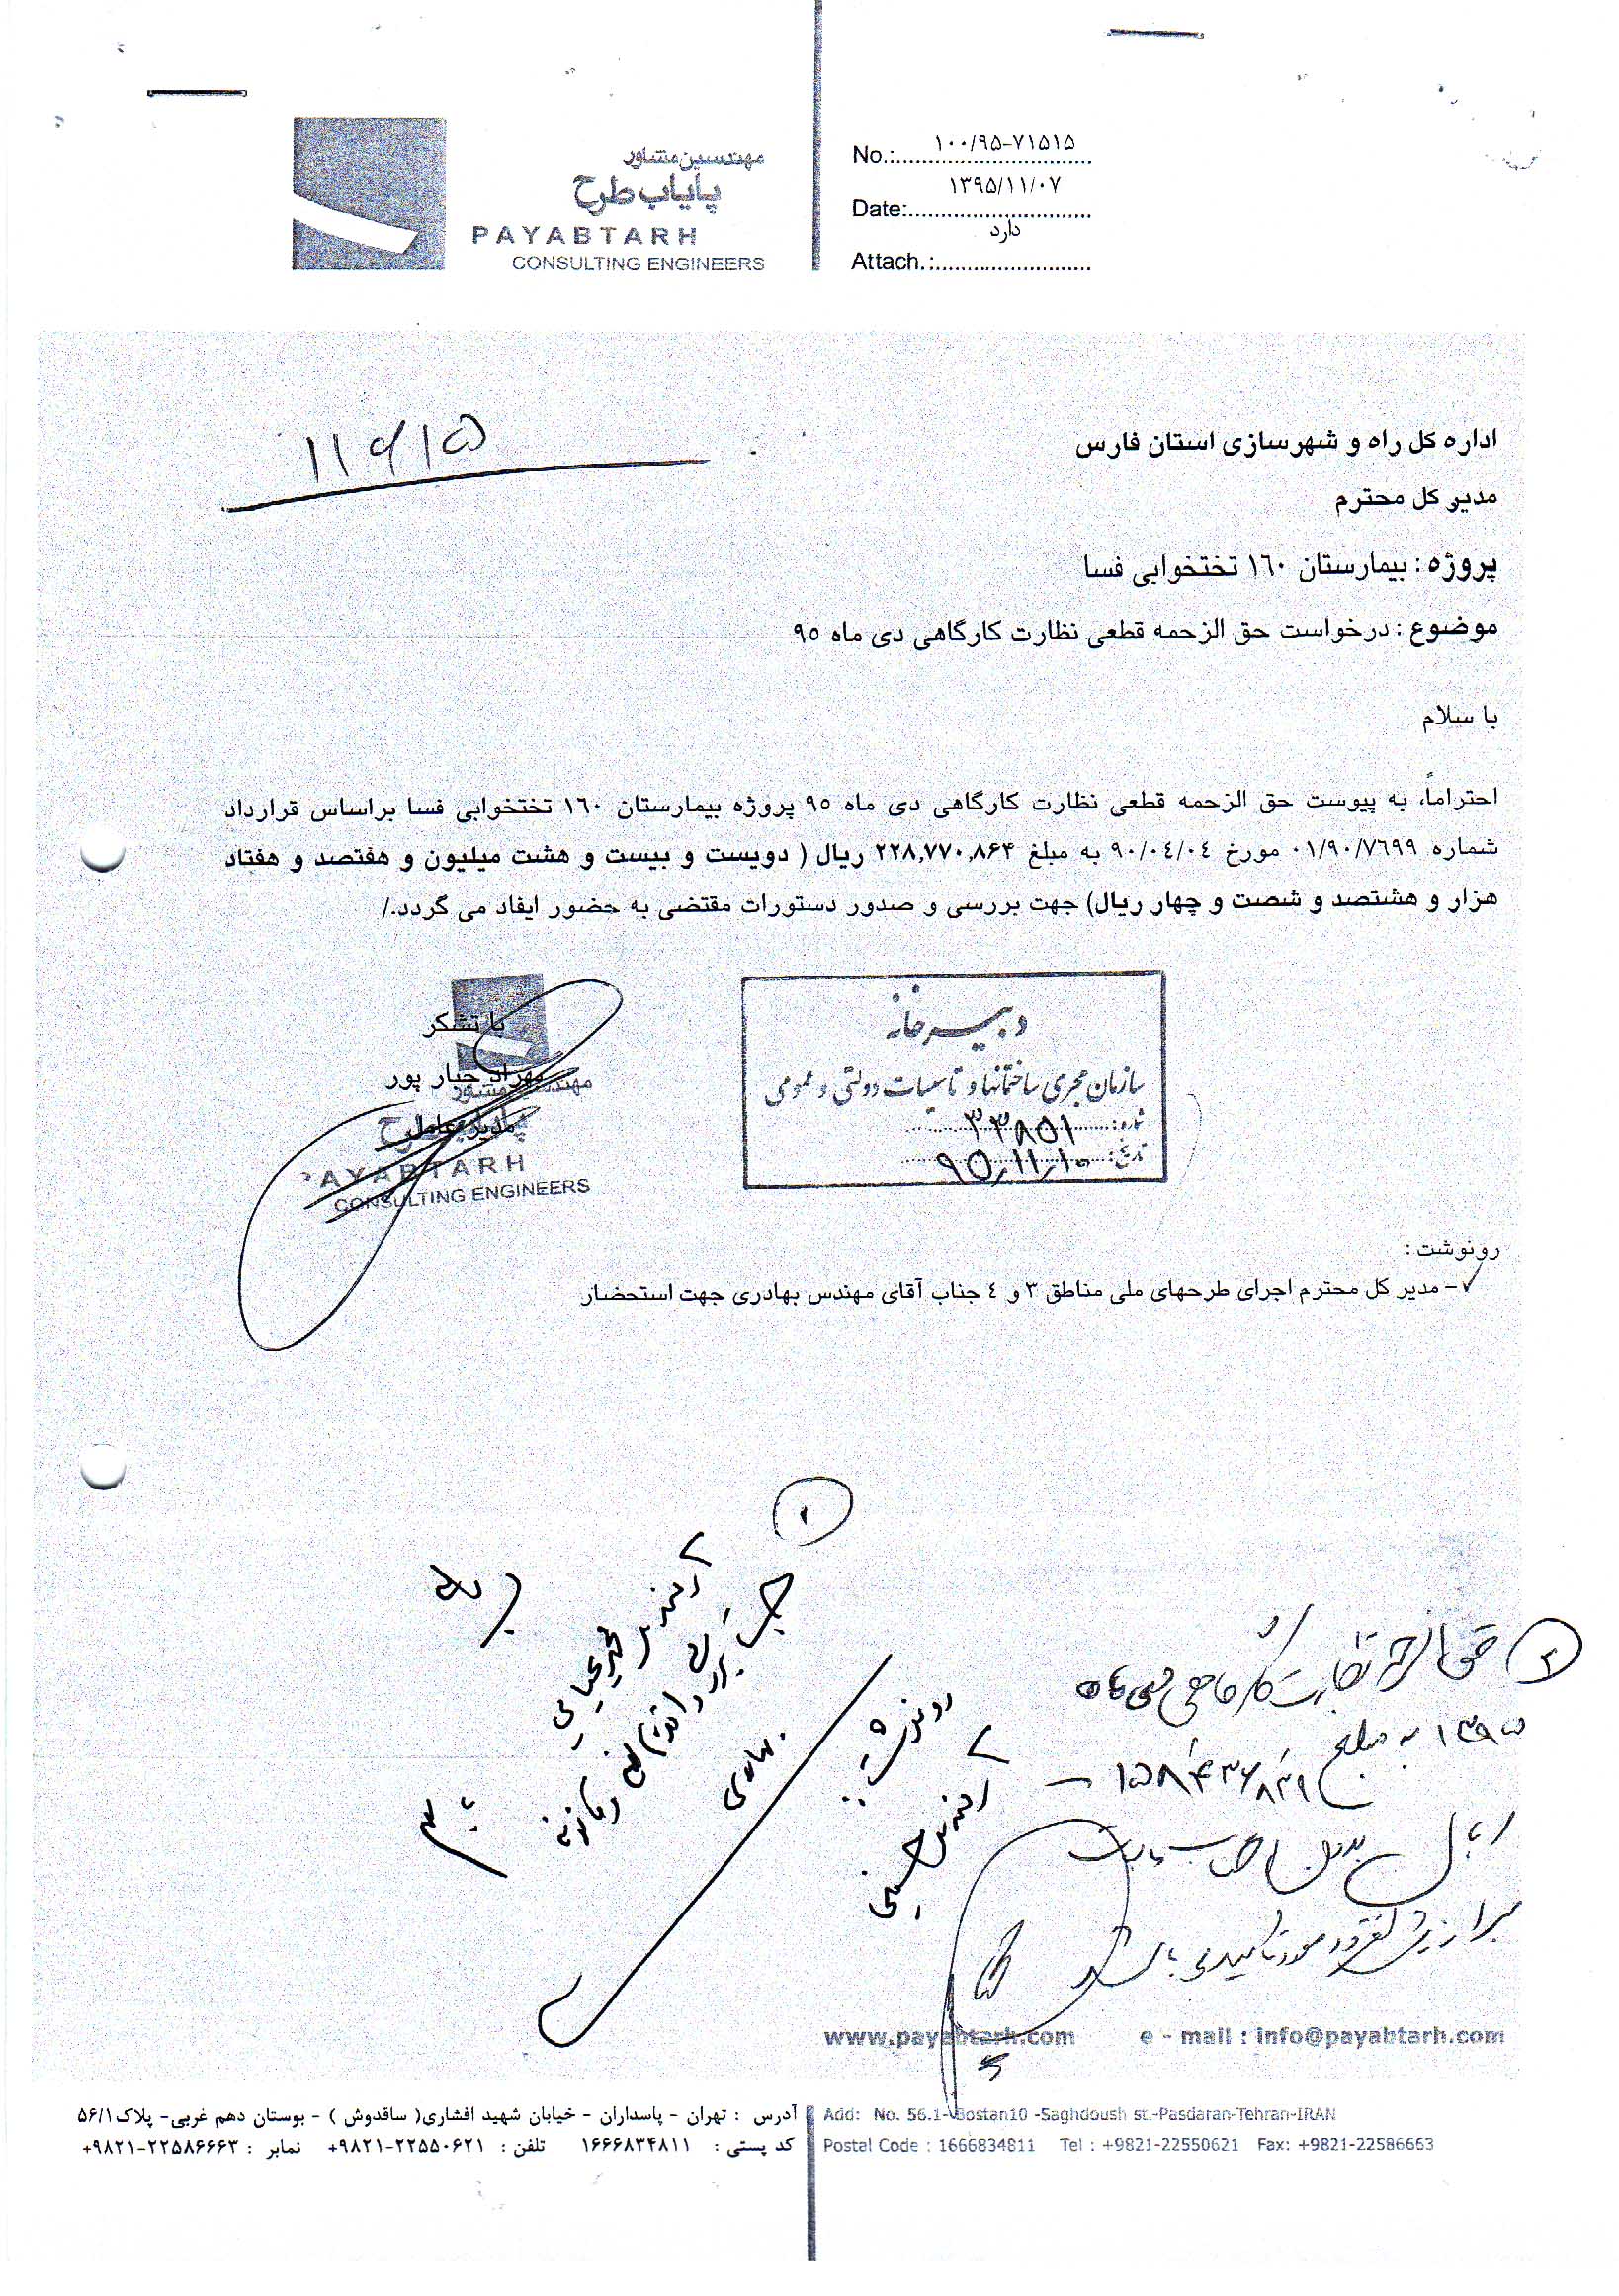 مهندسین مشاور
پایاب طرح
PAYABTARH
CONSULTING ENGINEERS
No.: ۱۰۰/۹۵-۷۱۵۱۵
Date: ۱۳۹۵/۱۱/۰۷
Attach.: دارد
اداره کل راه و شهرسازی استان فارس
مدیر کل محترم
پروژه : بیمارستان ١٦٠ تختخوابی فسا
موضوع : درخواست حق الزحمه قطعی نظارت کارگاهی دی ماه ٩٥
با سلام
احتراماً، به پیوست حق الزحمه قطعی نظارت کارگاهی دی ماه ٩٥ پروژه بیمارستان ١٦٠ تختخوابی فسا براساس قرارداد
شماره ٠١/٩٠/٧٦٩٩ مورخ ٩٠/٠٤/٠٤ به مبلغ ۲۲۸,۷۷۰,۸۶۴ ریال ( دویست و بیست و هشت میلیون و هفتصد و هفتاد
هزار و هشتصد و شصت و چهار ریال) جهت بررسی و صدور دستورات مقتضی به حضور ایفاد می گردد./
با تشکر
مهرداد جبار پور
مدیر عامل
مهندسین مشاور
پایاب طرح
PAYABTARH
CONSULTING ENGINEERS
دبیرخانه
سازمان مجری ساختمانها و تاسیسات دولتی و عمومی
شماره: ۳۳۸۵۱
تاریخ: ۹۵,۱۱,۱۰
رونوشت :
✓- مدیر کل محترم اجرای طرحهای ملی مناطق ٣ و ٤ جناب آقای مهندس بهادری جهت استحضار
۲
رونوشت:
۳ حق الزحمه نظارت کارگاهی دی ماه
۱۳۹۵ به مبلغ ۱۵۸,۴۳۶,۸۳۹
ریال
www.payabtarh.com e - mail : info@payabtarh.com
آدرس : تهران - پاسداران - خیابان شهید افشاری( ساقدوش ) - بوستان دهم غربی- پلاک ۵۶/۱
کد پستی : ۱۶۶۶۸۳۴۸۱۱ تلفن : ۲۲۵۵۰۶۲۱-۹۸۲۱+ نمابر : ۲۲۵۸۶۶۶۳-۹۸۲۱+
Add: No. 56.1- Bostan10 -Saghdoush st.-Pasdaran-Tehran-IRAN
Postal Code : 1666834811 Tel : +9821-22550621 Fax: +9821-22586663